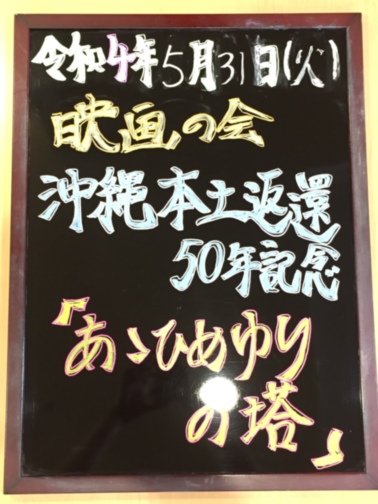 令和4年5月31日(火)
映画の会
沖縄本土返還
50年記念
『あゝひめゆり
の塔』